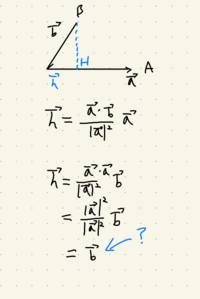 B
b⃗
H
A
h⃗
a⃗
h⃗ = (a⃗・b⃗)/|a⃗|² a⃗
h⃗ = (a⃗・a⃗)/|a⃗|² b⃗
= |a⃗|²/|a⃗|² b⃗
= b⃗ ?